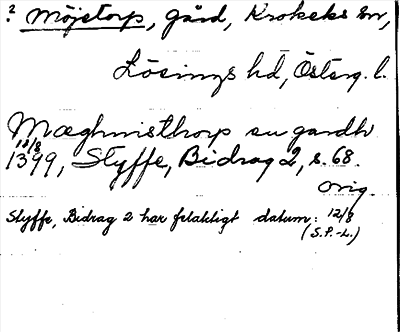 ? Möjetorp, gård, Krokeks sn,
Lösings hd, Österg. l.
Mæghinisthorp en gardh
10/8
1399, Styffe, Bidrag 2, s. 68.
orig.
Styffe, Bidrag 2 har felaktigt datum: 12/8
(S.P.-L.)